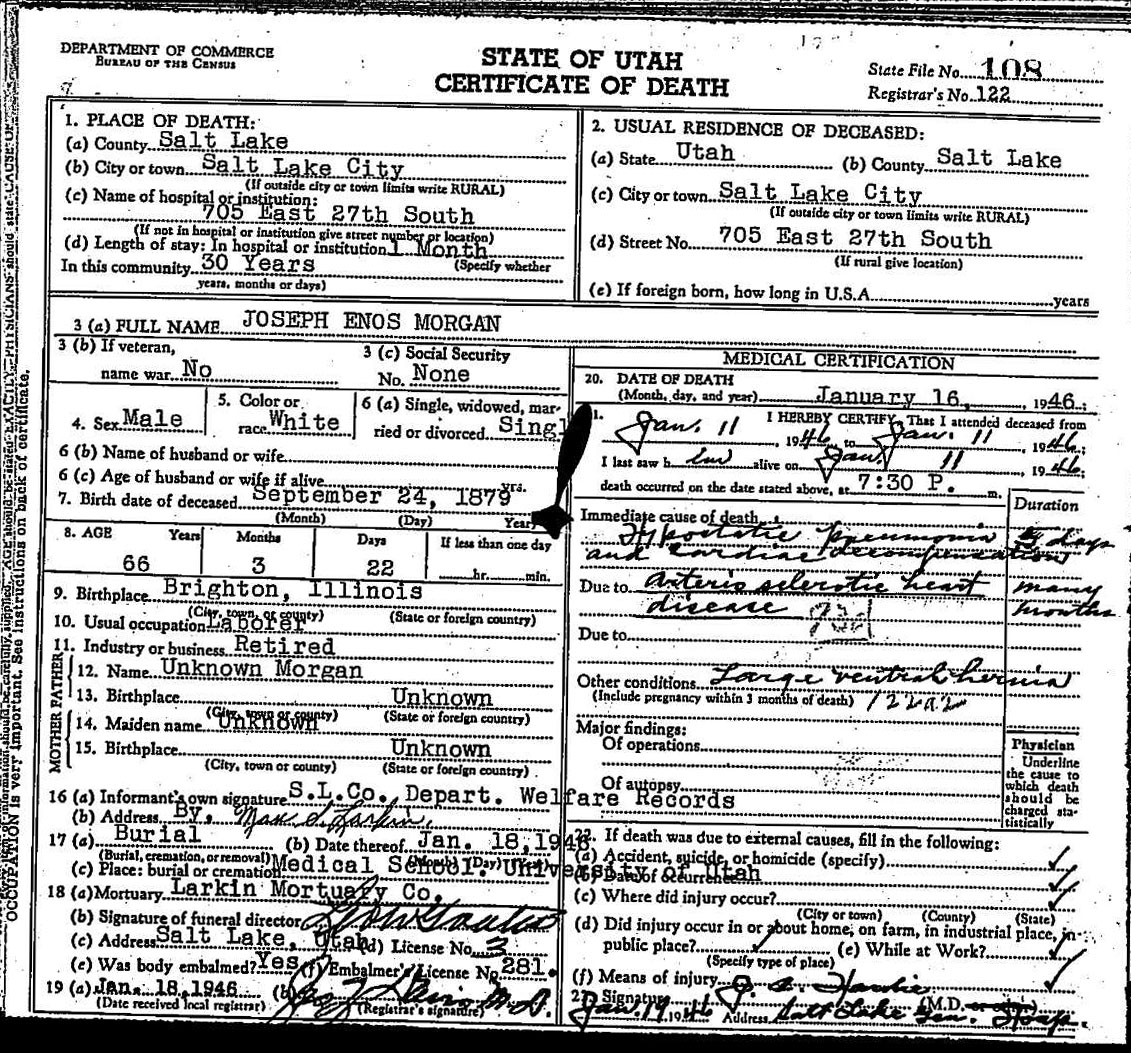 DEPARTMENT OF COMMERCE
BUREAU OF THE CENSUS
STATE OF UTAH
CERTIFICATE OF DEATH
State File No. 108
Registrar's No. 122
1. PLACE OF DEATH:
(a) County Salt Lake
(b) City or town Salt Lake City
(If outside city or town limits write RURAL)
(c) Name of hospital or institution:
705 East 27th South
(If not in hospital or institution give street number or location)
(d) Length of stay: In hospital or institution 1 Month
In this community 30 Years (Specify whether
years, months or days)
2. USUAL RESIDENCE OF DECEASED:
(a) State Utah (b) County Salt Lake
(c) City or town Salt Lake City
(If outside city or town limits write RURAL)
(d) Street No. 705 East 27th South
(If rural give location)
(e) If foreign born, how long in U.S.A. years
3 (a) FULL NAME JOSEPH ENOS MORGAN
3 (b) If veteran,
name war No
3 (c) Social Security
No. None
4. Sex Male
5. Color or
race White
6 (a) Single, widowed, mar-
ried or divorced Singl
6 (b) Name of husband or wife
6 (c) Age of husband or wife if alive yrs.
7. Birth date of deceased September 24, 1879
(Month) (Day) Year
8. AGE Years Months Days If less than one day
66 3 22 hr. min.
9. Birthplace Brighton, Illinois
(City, town, or county) (State or foreign country)
10. Usual occupation Laborer
11. Industry or business Retired
FATHER
12. Name Unknown Morgan
13. Birthplace Unknown
(City, town or county) (State or foreign country)
MOTHER
14. Maiden name Unknown
15. Birthplace Unknown
(City, town or county) (State or foreign country)
16 (a) Informant's own signature S.L.Co. Depart. Welfare Records
(b) Address By, Max S. Larkin.
17 (a) Burial (b) Date thereof Jan. 18, 1946
(Burial, cremation, or removal) (Month) (Day) (Year)
(c) Place: burial or cremation Medical School. University of Utah
18 (a) Mortuary Larkin Mortuary Co.
(b) Signature of funeral director
(c) Address Salt Lake, Utah (d) License No. 3
(e) Was body embalmed? Yes (f) Embalmer's License No 281.
19 (a) Jan. 18, 1946 (b) M.D.
(Date received local registrar) (Registrar's signature)
MEDICAL CERTIFICATION
20. DATE OF DEATH
(Month, day, and year) January 16, 1946;
1. I HEREBY CERTIFY, That I attended deceased from
Jan. 11, 1946 to Jan. 11, 1946;
I last saw him alive on Jan. 11, 1946;
death occurred on the date stated above, at 7:30 P. m.
Duration
Immediate cause of death
Hypostatic pneumonia 5 days
and cardiac decompensation
Due to Arterio sclerotic heart many
disease months
Due to
Other conditions Large ventral hernia
(Include pregnancy within 3 months of death) 122a2
Major findings:
Of operations
Of autopsy
Physician
Underline
the cause to
which death
should be
charged sta-
tistically
22. If death was due to external causes, fill in the following:
(a) Accident, suicide, or homicide (specify)
(b) Date of occurrence
(c) Where did injury occur?
(City or town) (County) (State)
(d) Did injury occur in or about home, on farm, in industrial place, in
public place? (e) While at Work?
(Specify type of place)
(f) Means of injury
Signature (M.D.
Jan. 19 1946 Address Salt Lake Gen. Hosp.
OCCUPATION is very important. See instructions on back of certificate.